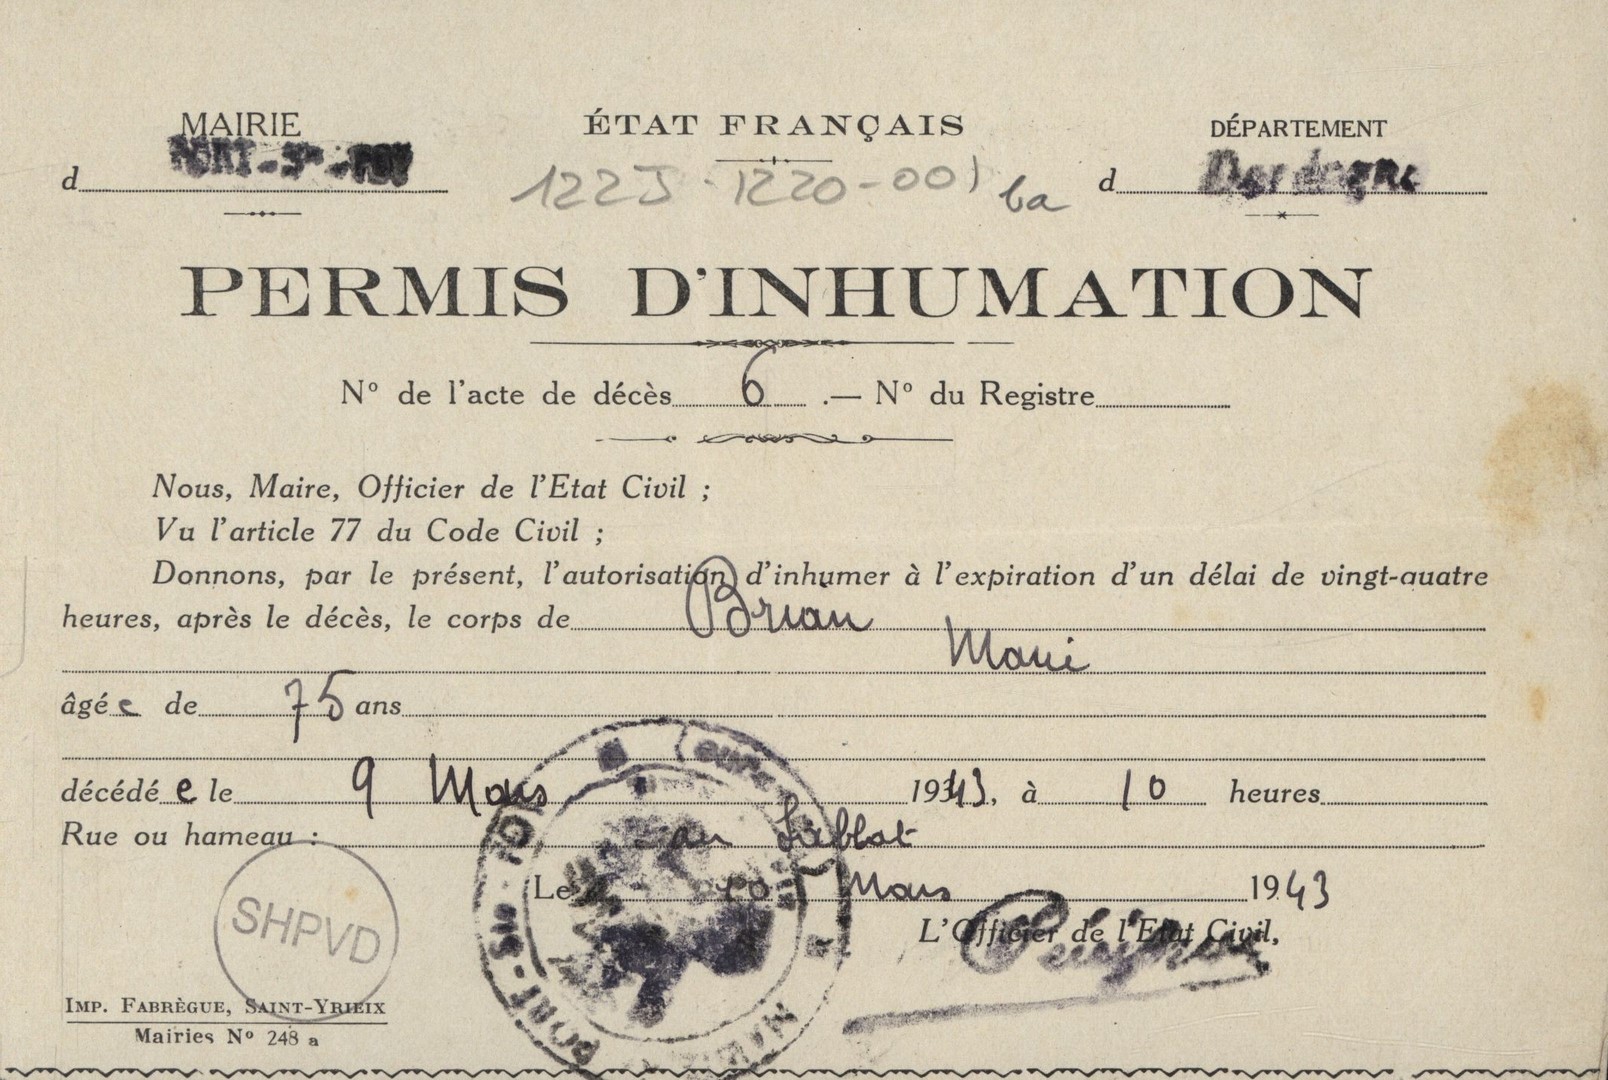 MAIRIE
ÉTAT FRANÇAIS
DÉPARTEMENT
d PORT-Ste-FOY
d Dordogne
122J-1220-001 ba
PERMIS D'INHUMATION
N° de l'acte de décès 6 .— N° du Registre
Nous, Maire, Officier de l'Etat Civil ;
Vu l'article 77 du Code Civil ;
Donnons, par le présent, l'autorisation d'inhumer à l'expiration d'un délai de vingt-quatre
heures, après le décès, le corps de Brian
Marie
âgée de 75 ans
décédée le 9 Mars 1943, à 10 heures
Rue ou hameau : au
Le 10 Mars 1943
L'Officier de l'Etat Civil,
SHPVD
IMP. FABRÈGUE, SAINT-YRIEIX
Mairies N° 248 a